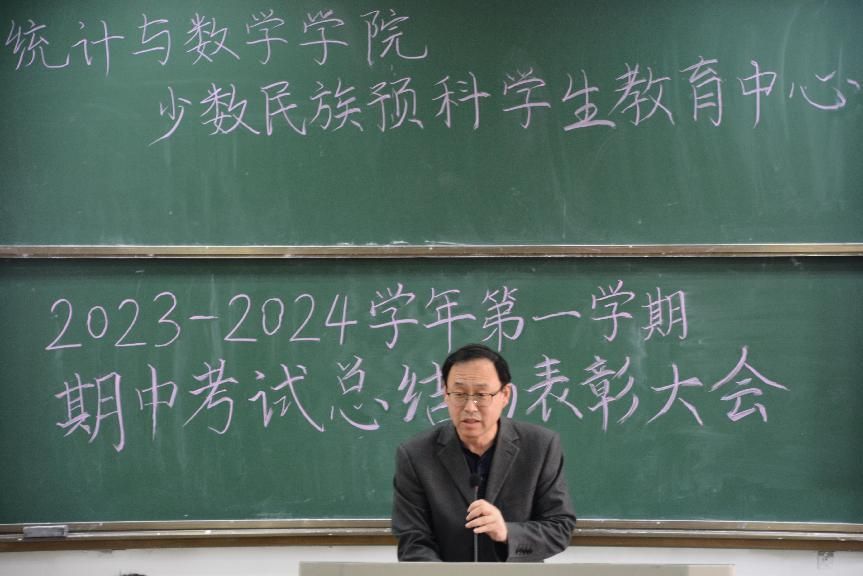 统计与数学学院
少数民族预科学生教育中心
2023-2024学年第一学期
期中考试总结 表彰大会